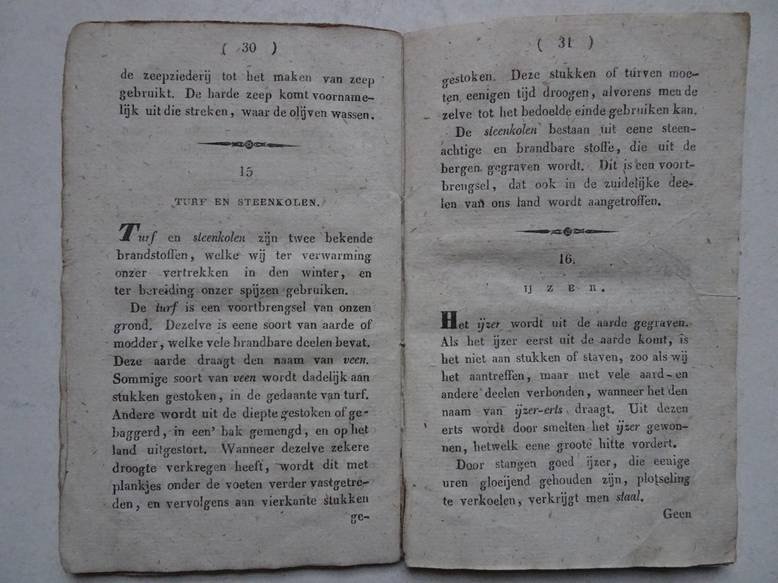 ( 30 )
de zeepziederij tot het maken van zeep
gebruikt. De harde zeep komt voorname-
lijk uit die streken, waar de olijven wassen.
15
TURF EN STEENKOLEN.
Turf en steenkolen zijn twee bekende
brandstoffen, welke wij ter verwarming
onzer vertrekken in den winter, en
ter bereiding onzer spijzen gebruiken.
De turf is een voortbrengsel van onzen
grond. Dezelve is eene soort van aarde of
modder, welke vele brandbare deelen bevat.
Deze aarde draagt den naam van veen.
Sommige soort van veen wordt dadelijk aan
stukken gestoken, in de gedaante van turf.
Andere wordt uit de diepte gestoken of ge-
baggerd, in een' bak gemengd, en op het
land uitgestort. Wanneer dezelve zekere
droogte verkregen heeft, wordt dit met
plankjes onder de voeten verder vastgetre-
den, en vervolgens aan vierkante stukken
ge-
( 31 )
gestoken. Deze stukken of turven moe-
ten eenigen tijd droogen, alvorens men de
zelve tot het bedoelde einde gebruiken kan.
De steenkolen bestaan uit eene steen-
achtige en brandbare stoffe, die uit de
bergen gegraven wordt. Dit is een voort-
brengsel, dat ook in de zuidelijke dee-
len van ons land wordt aangetroffen.
16.
IJZER.
Het ijzer wordt uit de aarde gegraven.
Als het ijzer eerst uit de aarde komt, is
het niet aan stukken of staven, zoo als wij
het aantreffen, maar met vele aard- en
andere deelen verbonden, wanneer het den
naam van ijzer-erts draagt. Uit dezen
erts wordt door smelten het ijzer gewon-
nen, hetwelk eene groote hitte vordert.
Door stangen goed ijzer, die eenige
uren gloeijend gehouden zijn, plotseling
te verkoelen, verkrijgt men staal.
Geen